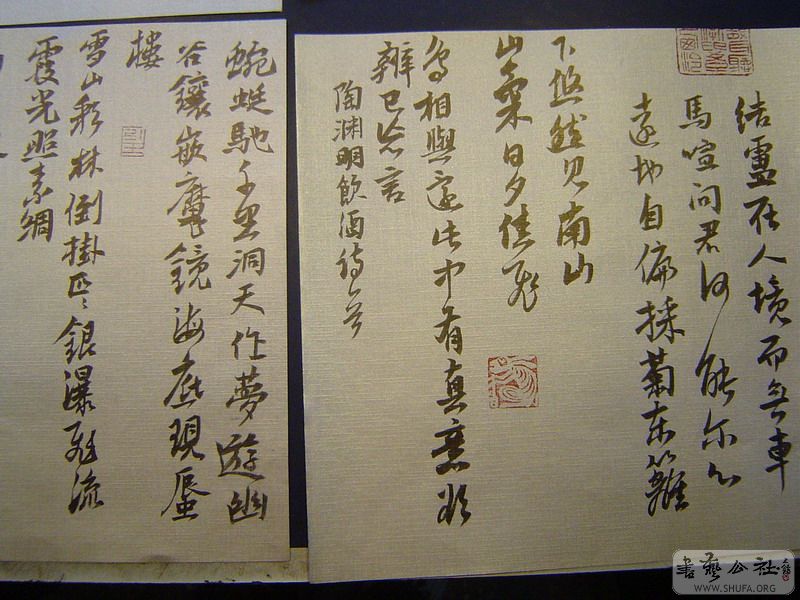 結廬在人境而無車
馬喧問君何能尔心
遠地自偏採菊東籬
下悠然見南山
山氣日夕佳飛
鳥相與還此中有真意欲
辨已忘言
陶淵明飲酒詩
蜿蜒馳千里洞天作夢遊幽
谷鑲嵌魔鏡海底現蜃
樓
雪山彩林倒掛匹〻銀瀑飛流
霞光照素綢
書藝公社
WWW.SHUFA.ORG